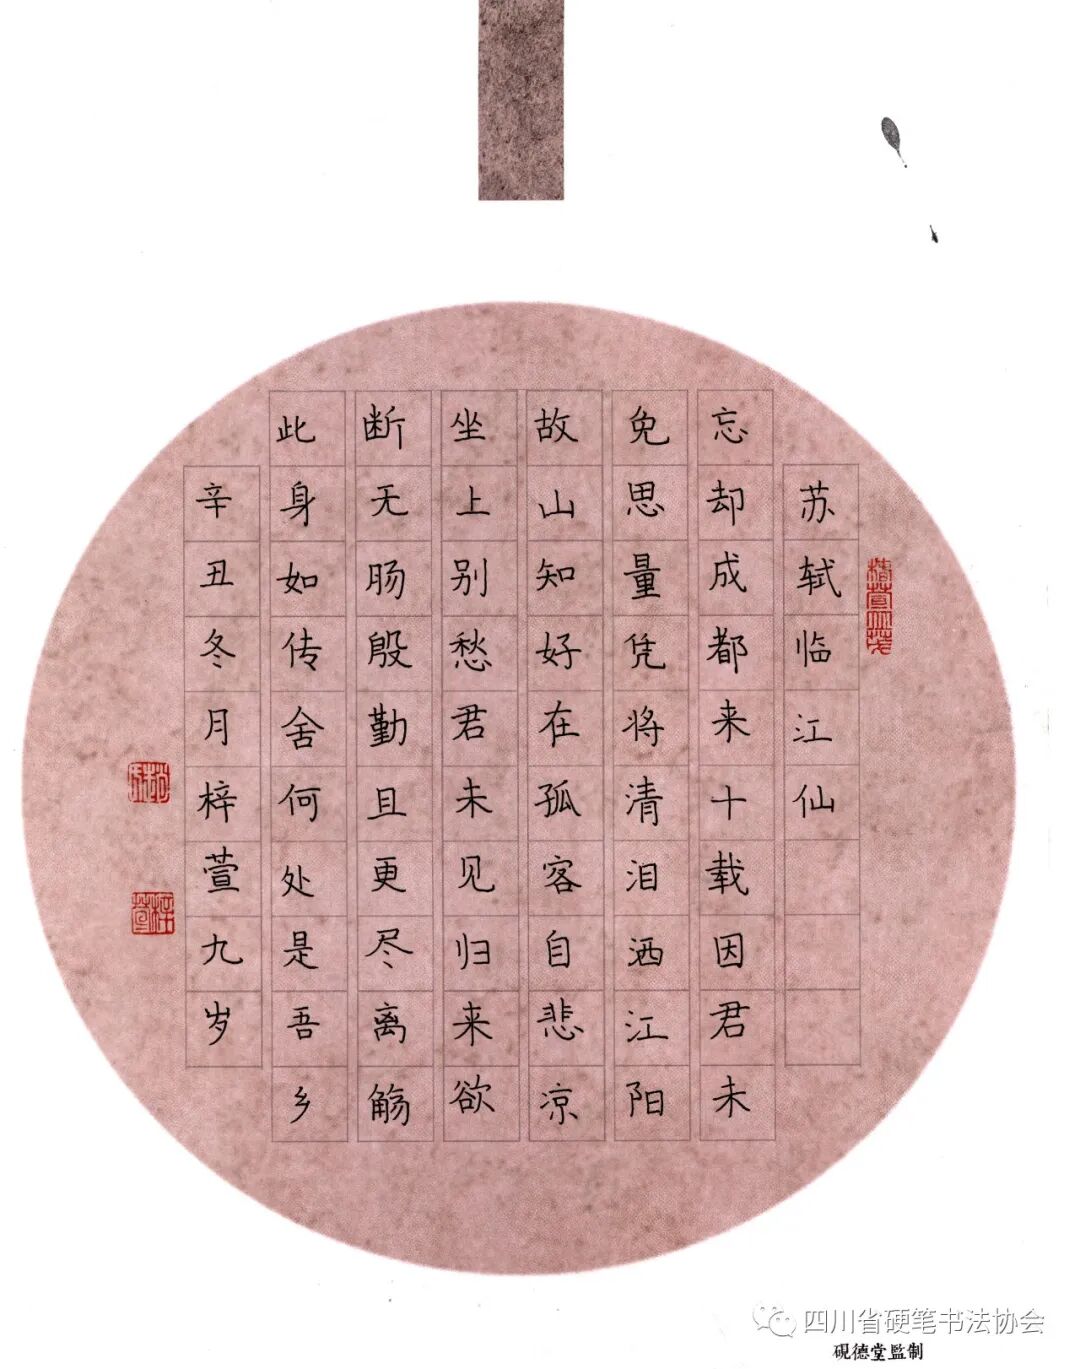 苏轼临江仙
忘却成都来十载因君未
免思量凭将清泪洒江阳
故山知好在孤客自悲凉
坐上别愁君未见归来欲
断无肠殷勤且更尽离觞
此身如传舍何处是吾乡
辛丑冬月梓萱九岁
四川省硬笔书法协会
砚德堂監制